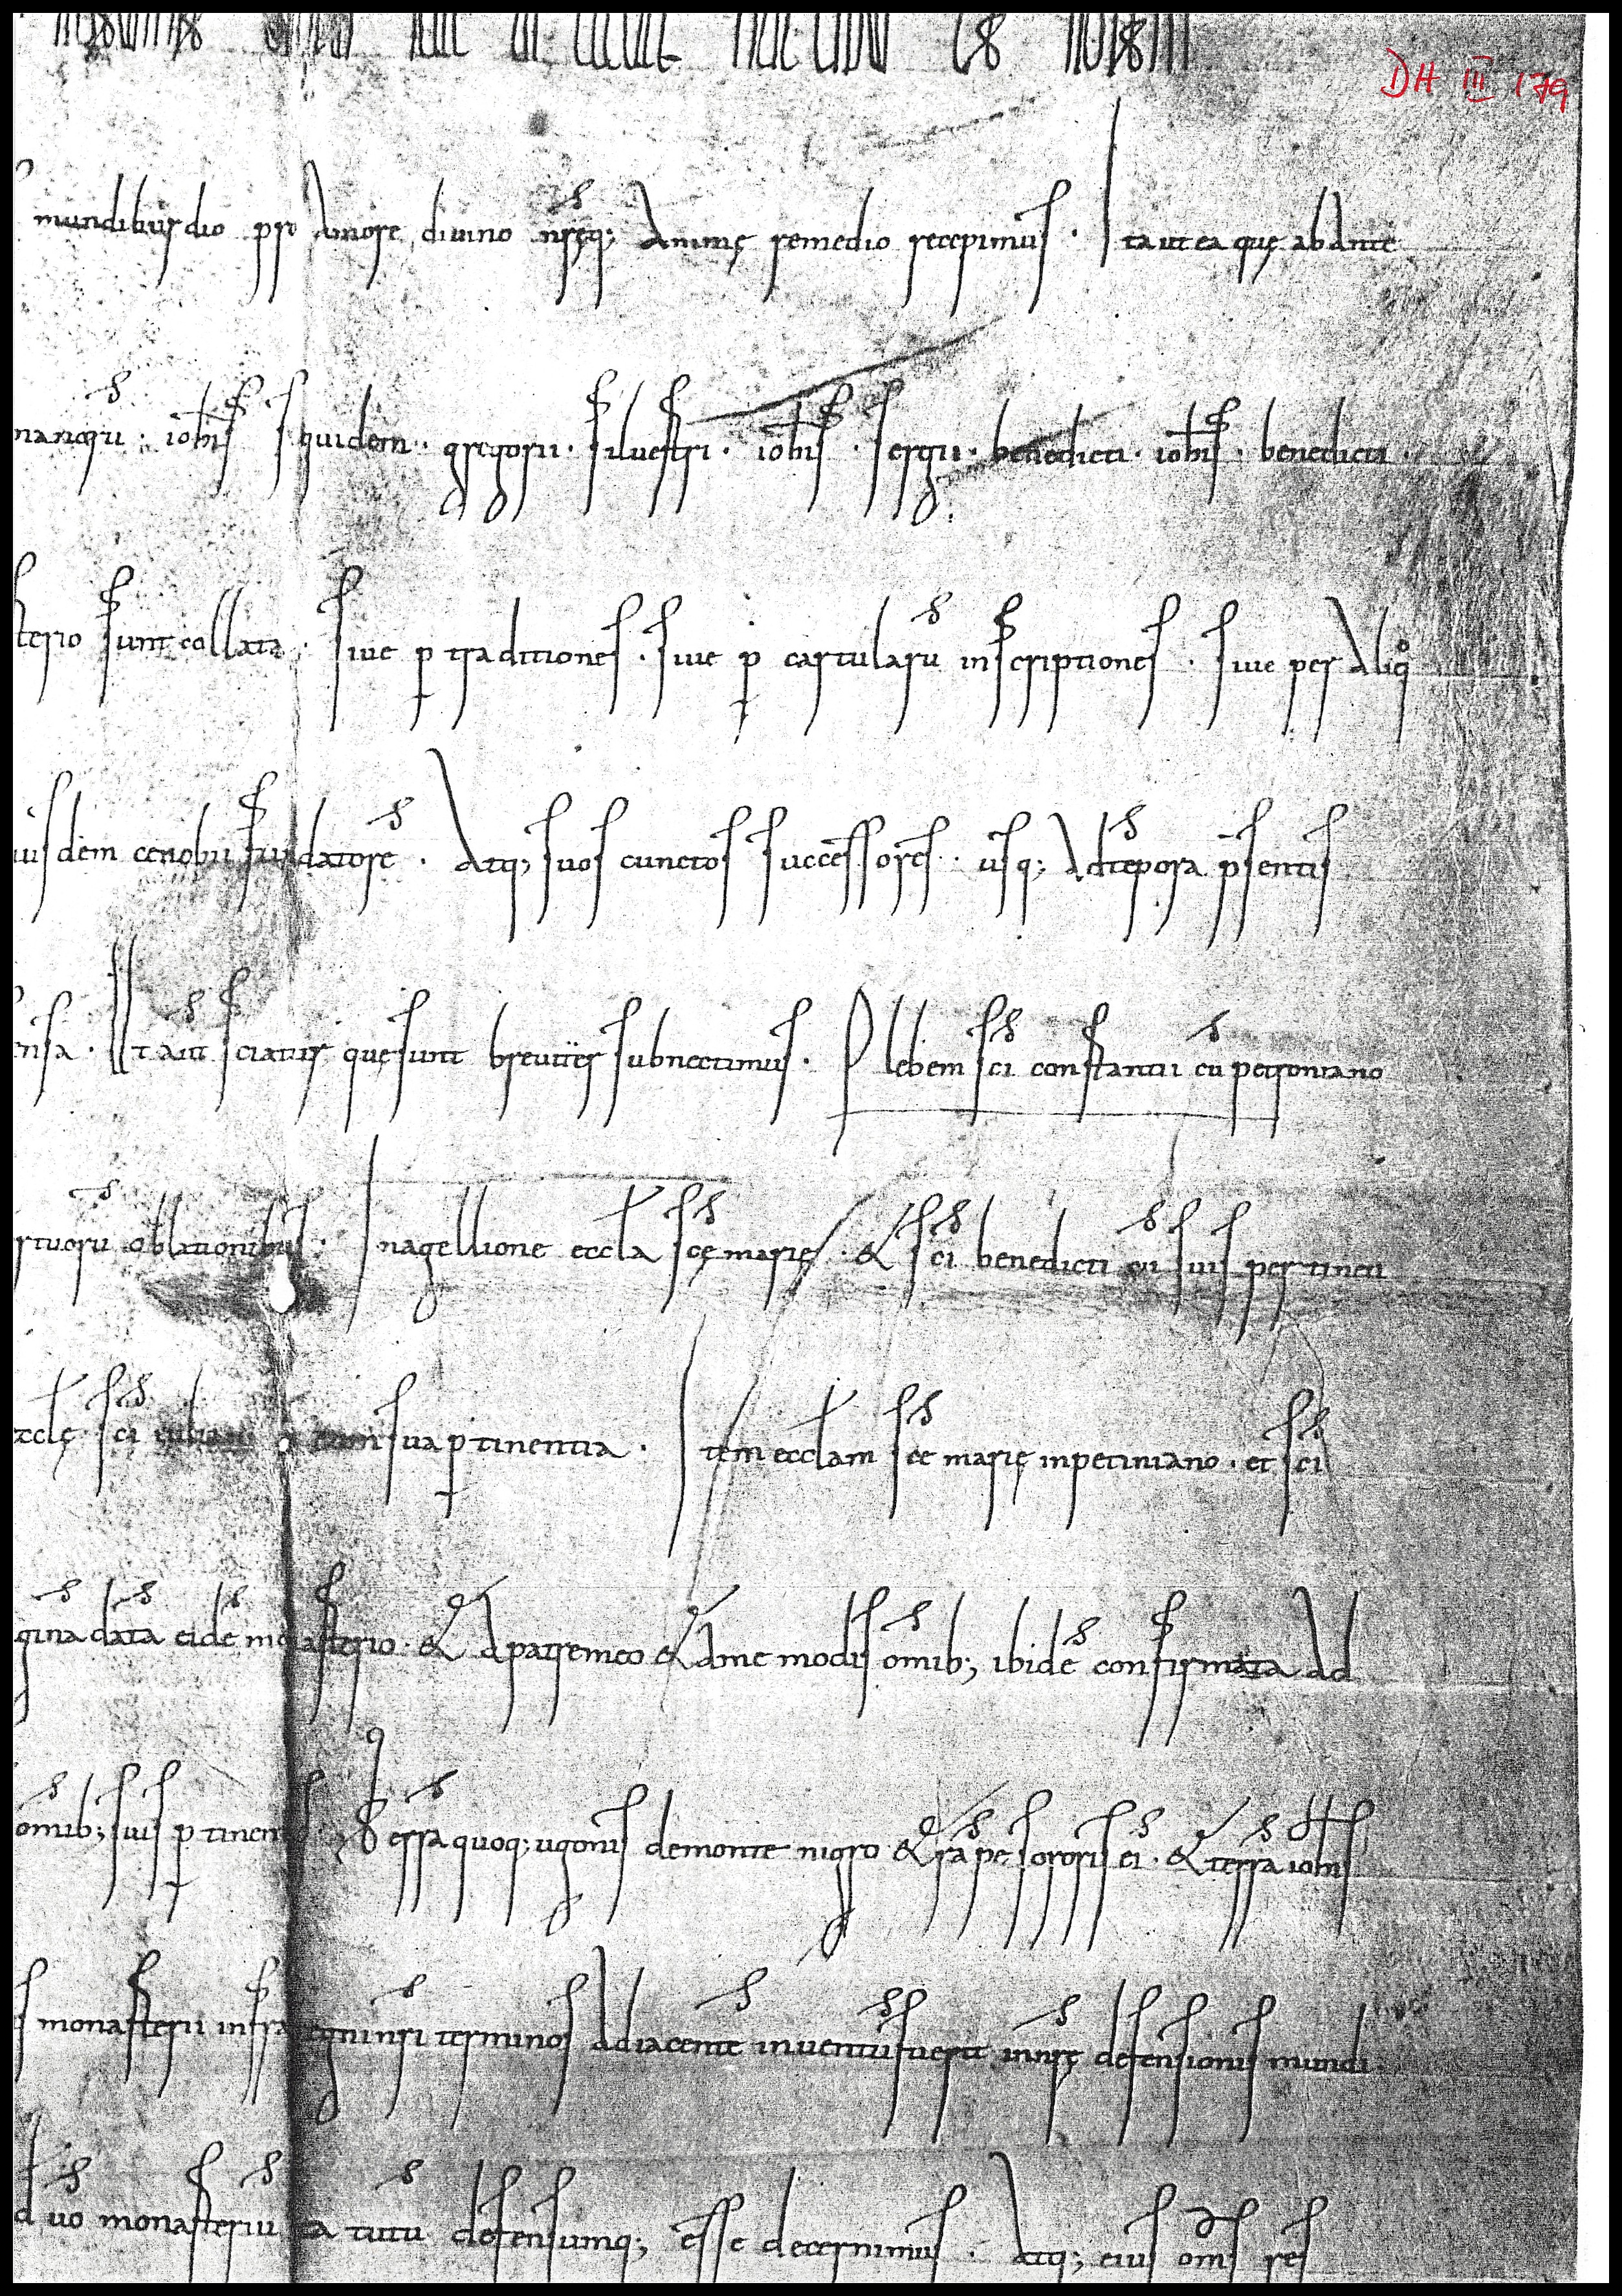 DH III 179
mundiburdio pro amore divino nręq; animę remedio recepimus . Ita ut ea quę ab ante
iohis siquidem . gregorii . silvestri . iohis . sergii . benedicti . iohis . benedicti .
sterio sunt collata . sive p traditiones . sive p cartularu inscriptiones . sive per aliq
iusdem cenobii fundatore . Atq; suos cunctos successores . usq; ad tepora psentis
nsa . Ut aut sciatur que sunt breviter subnectimus . Plebem sci constantii cu petroniano
rtuoru oblationibus . In agellione eccla scę marię . & sci benedicti cu suis pertinetii
ecclę sci cum sua ptinentia . Item ecclam sce marię in petiniano . et sci
gina data eide monasterio . & a patre meo & a me modis omib; ibide confirmata ad
omib; suis ptinentiis . Terra quoq; ugonis de monte nigro & rape sororis ei . & terra iohis
s monasterii infra regni nri terminos adiacente inventu fuerit in nrę defensionis mundi
d uo monasteriu ita tutu defensumq; esse decernimus . Atq; eius oms res